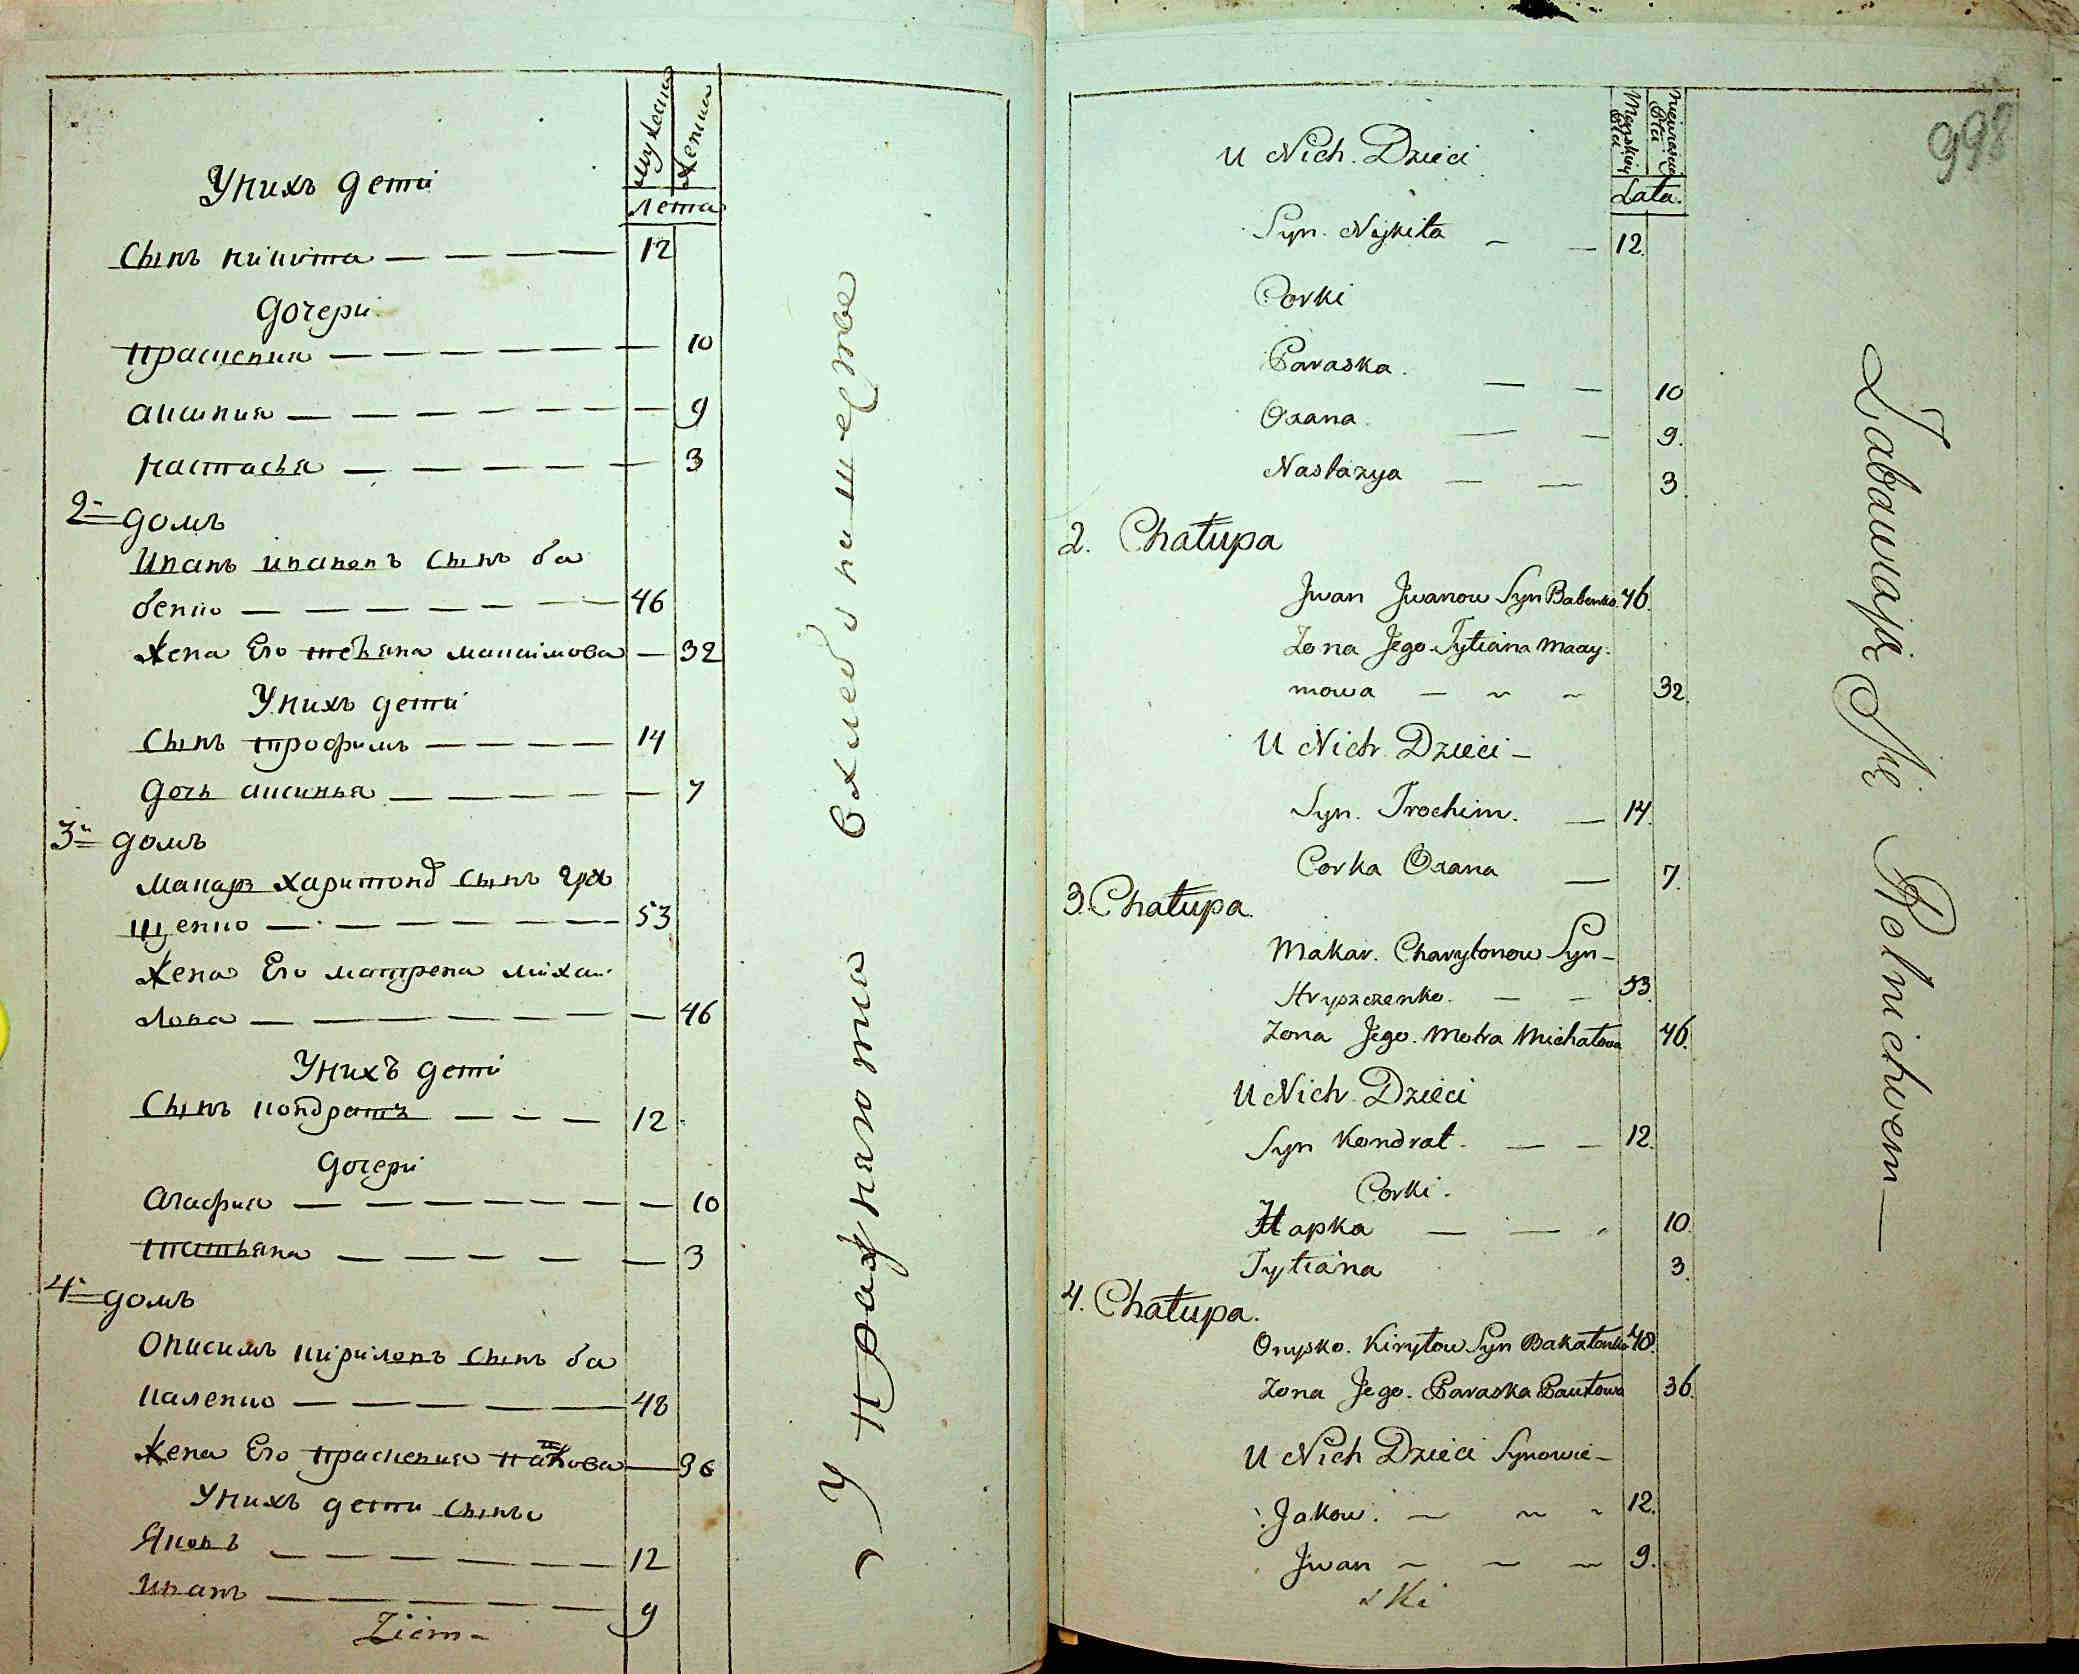 мужеска
женска
лета
Унихъ дети
Сынъ никита — — — — 12
дочери
прасковия — — — — — — 10
аксиния — — — — — — — 9
настасья — — — — — 3
2й домъ
Иванъ ивановъ сынъ ба
бенко — — — — — — — 46
жена Его татьяна максимова — 32
Унихъ дети
Сынъ трофимъ — — — — 14
дочь аксинья — — — — — 7
3й домъ
макаръ харитоновъ сынъ гри
щенко — — — — — — 53
жена Его матрена михай
лова — — — — — — — 46
Унихъ дети
Сынъ кондратъ — — — 12
дочери
агафия — — — — — — — 10
татьяна — — — — — — 3
4й домъ
Онисимъ кириловъ сынъ ба
каленко — — — — — — 48
жена Его прасковия павлова — 36
Унихъ дети сынъ
Яковъ — — — — — — 12
Иванъ — — — — — — 9
Ziem-
упражняютца в хлебопашестве
998
Męzkiey Płci
Lata.
U Nich. Dzieci
Syn. Nykita — — 12.
Corki
Paraska. — — 10
Oxana. — — 9.
Nastazya — — 3.
2. Chałupa
Jwan Jwanow Syn Babenko. 46.
Zona Jego. Tytiana Maxy.
mowa — ~ ~ 32.
U Nich. Dzieci —
Syn. Trochim. — 14.
Corka Oxana — 7.
3. Chałupa.
Makar. Charytonow Syn —
Hryszczenko. — — 53.
Zona Jego. Motra Michałowa 46.
U Nich. Dzieci
Syn Kondrat. — — 12.
Corki.
Hapka — — - 10.
Tytiana 3.
4. Chałupa.
Onysko. Kiryłow Syn Bakałenko 48.
Zona Jego. Paraska Pawłowa 36.
U Nich Dzieci Synowie —
Jakow. — ~ - 12.
Jwan ~ ~ ~ 9.
ski
Zabawiają Się Rolnichvem —